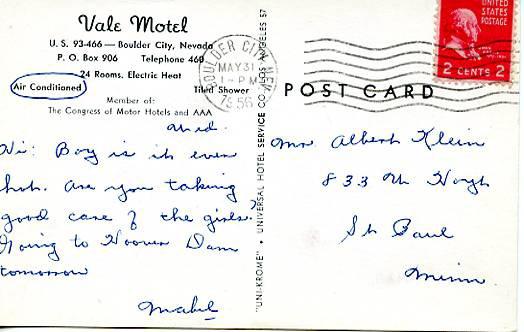 Vale Motel
U. S. 93-466 — Boulder City, Nevada
P. O. Box 906 Telephone 460
24 Rooms, Electric Heat
Air Conditioned Tiled Shower
Member of:
The Congress of Motor Hotels and AAA
Wed.
Hi: Boy is it ever
hot. Are you taking
good care of the girls?
Going to Hoover Dam
tomorrow
Mabel
"UNI-KROME" • UNIVERSAL HOTEL SERVICE CO. LOS ANGELES 57
BOULDER CITY, NEV.
MAY 31
1 - PM
1956
UNITED
STATES
POSTAGE
2 CENTS 2
POST CARD
Mr Albert Klein
833
St. Paul
Minn